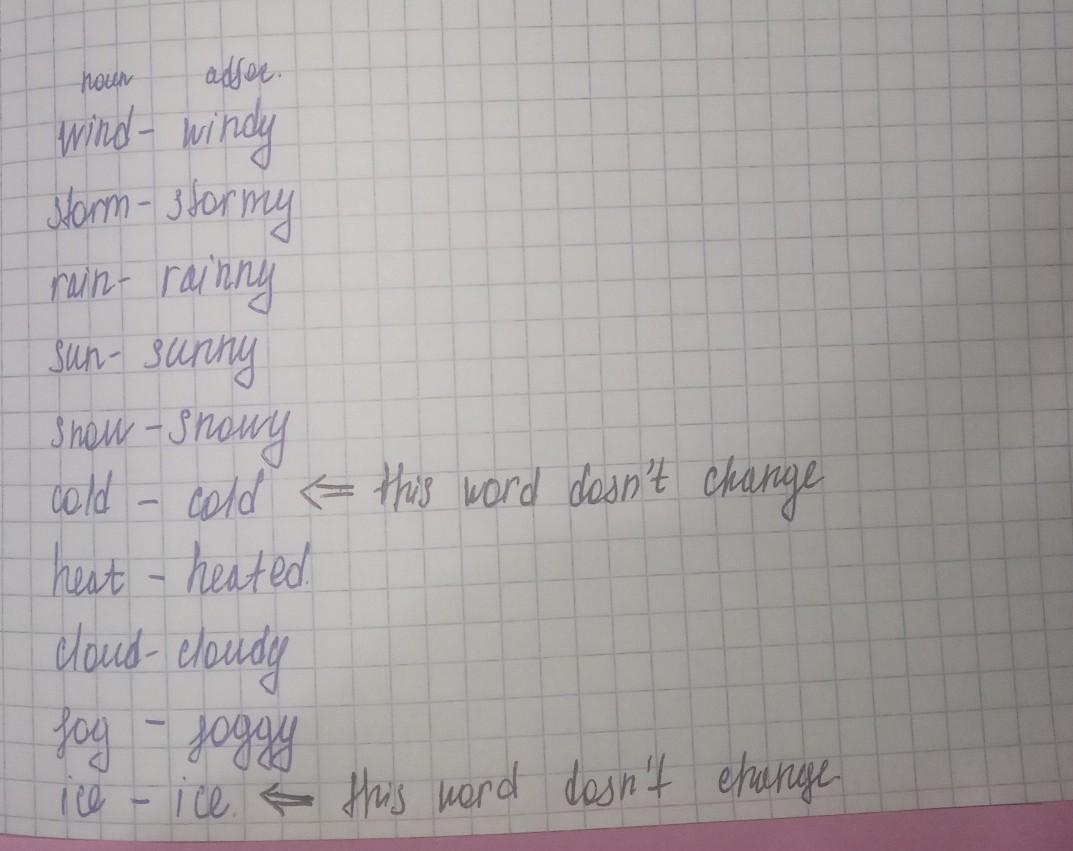 noun adjec.
wind - windy
storm - stormy
rain - rainny
sun - sunny
snow - snowy
cold - cold <= this word dosn't change
heat - heated.
cloud - cloudy
fog - foggy
ice - ice. <= this word dosn't change.